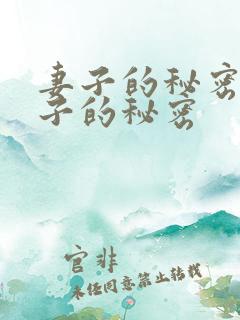 妻子的秘密
子的秘密
官非
未经同意禁止转载